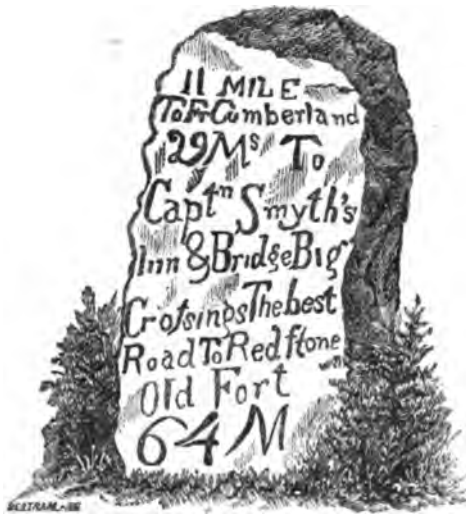 11 MILE
To Ft Cumberland
29 Ms To
Captn Smyth's
Inn & Bridge Big
Crofsings The best
Road To Redftone
Old Fort
64 M